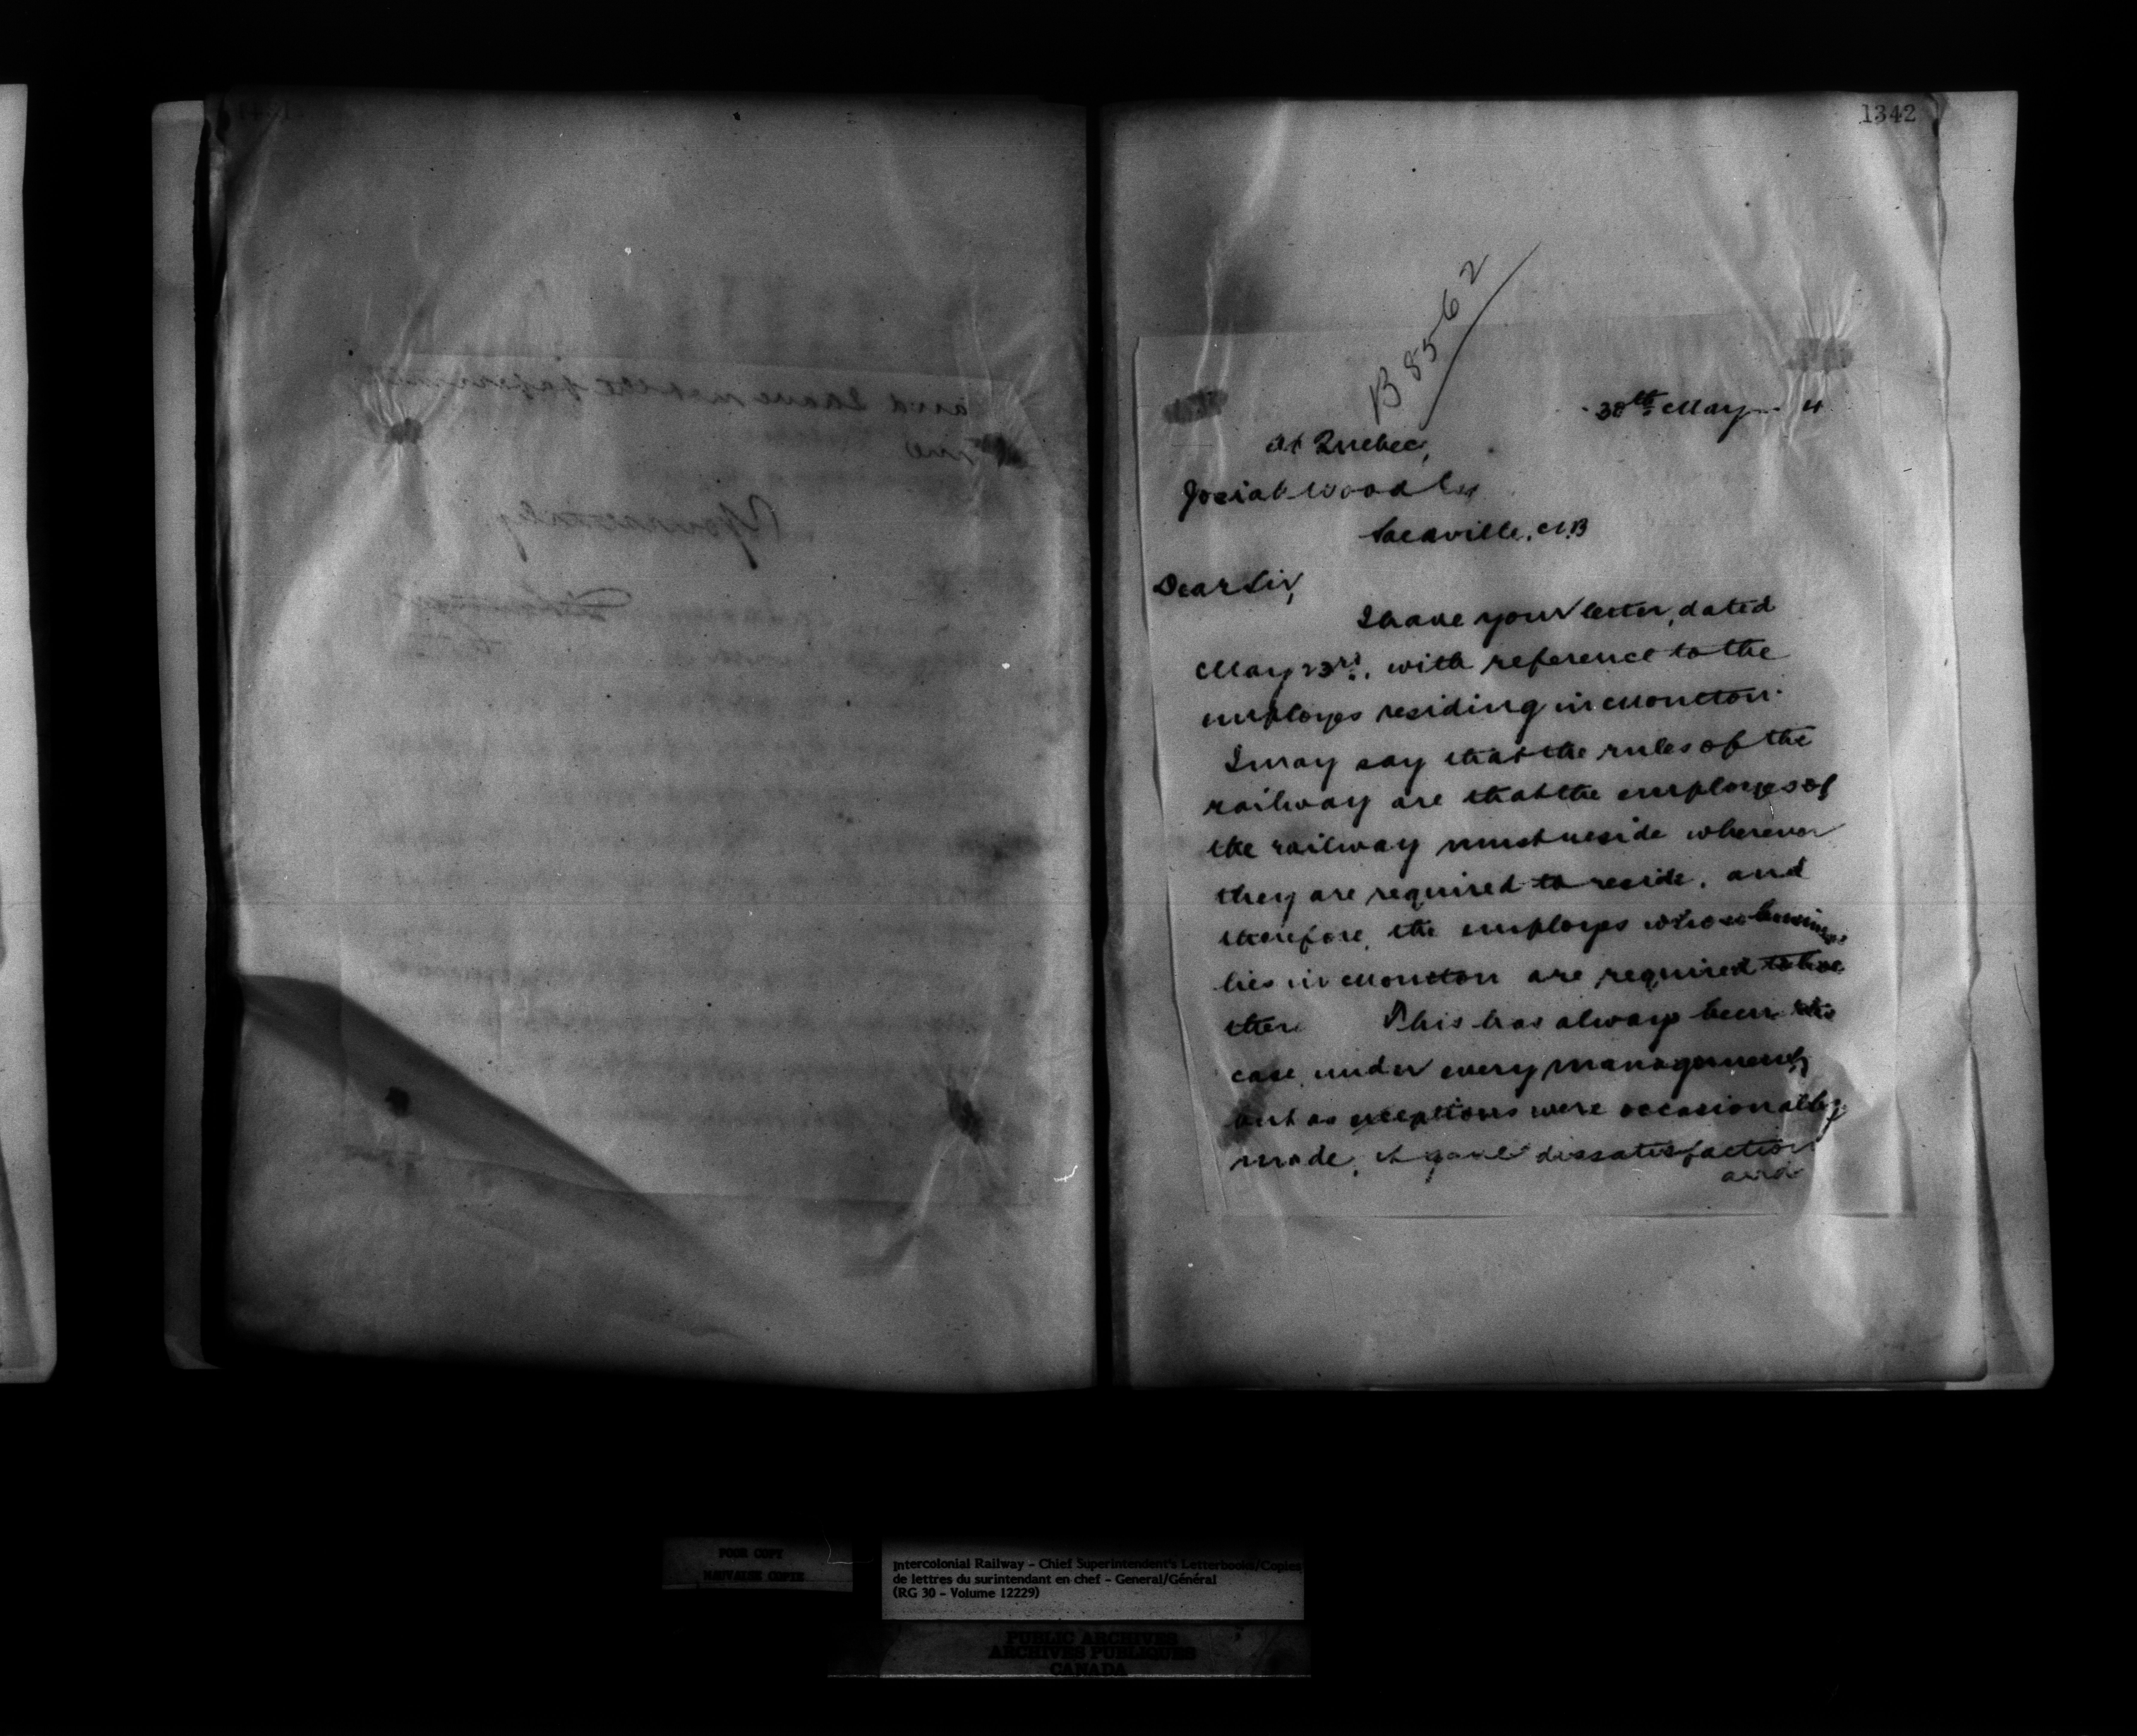 and have not the
me
Yours truly
1342
B 8562
30th May 4
At Quebec,
Josiah Wood Esq
Sackville, N.B
Dear Sir,
I have your letter, dated
May 23rd, with reference to the
employes residing in Moncton.
I may say that the rules of the
railway are that the employes of
the railway must reside wherever
they are required to reside, and
therefore, the employes whose business
lies in Moncton are required to live
there This has always been the
case under every management,
but as exceptions were occasionally
made, it gave dissatisfaction
and
POOR COPY
MAUVAISE COPIE
Intercolonial Railway - Chief Superintendent's Letterbooks/Copies
de lettres du surintendant en chef - General/Général
(RG 30 - Volume 12229)
PUBLIC ARCHIVES
ARCHIVES PUBLIQUES
CANADA